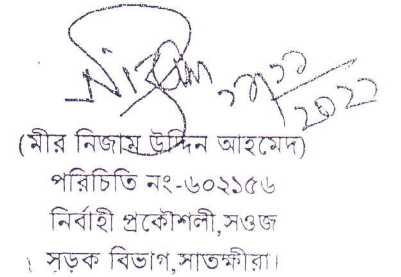 (মীর নিজাম উদ্দিন আহমেদ)
পরিচিতি নং-৬০২১৫৬
নির্বাহী প্রকৌশলী,সওজ
সড়ক বিভাগ,সাতক্ষীরা।